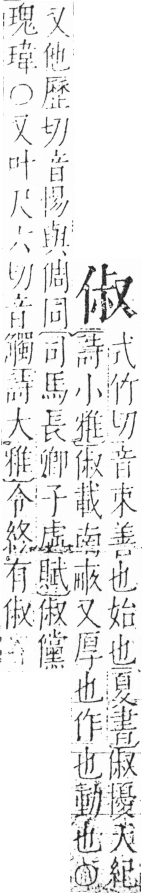 俶
式竹切音束善也始也夏書俶擾天紀
詩小雅俶載南畝又厚也作也動也○
又他歷切音惕與倜同司馬長卿子虛賦俶儻
瑰瑋○又叶尺六切音觸詩大雅令終有俶